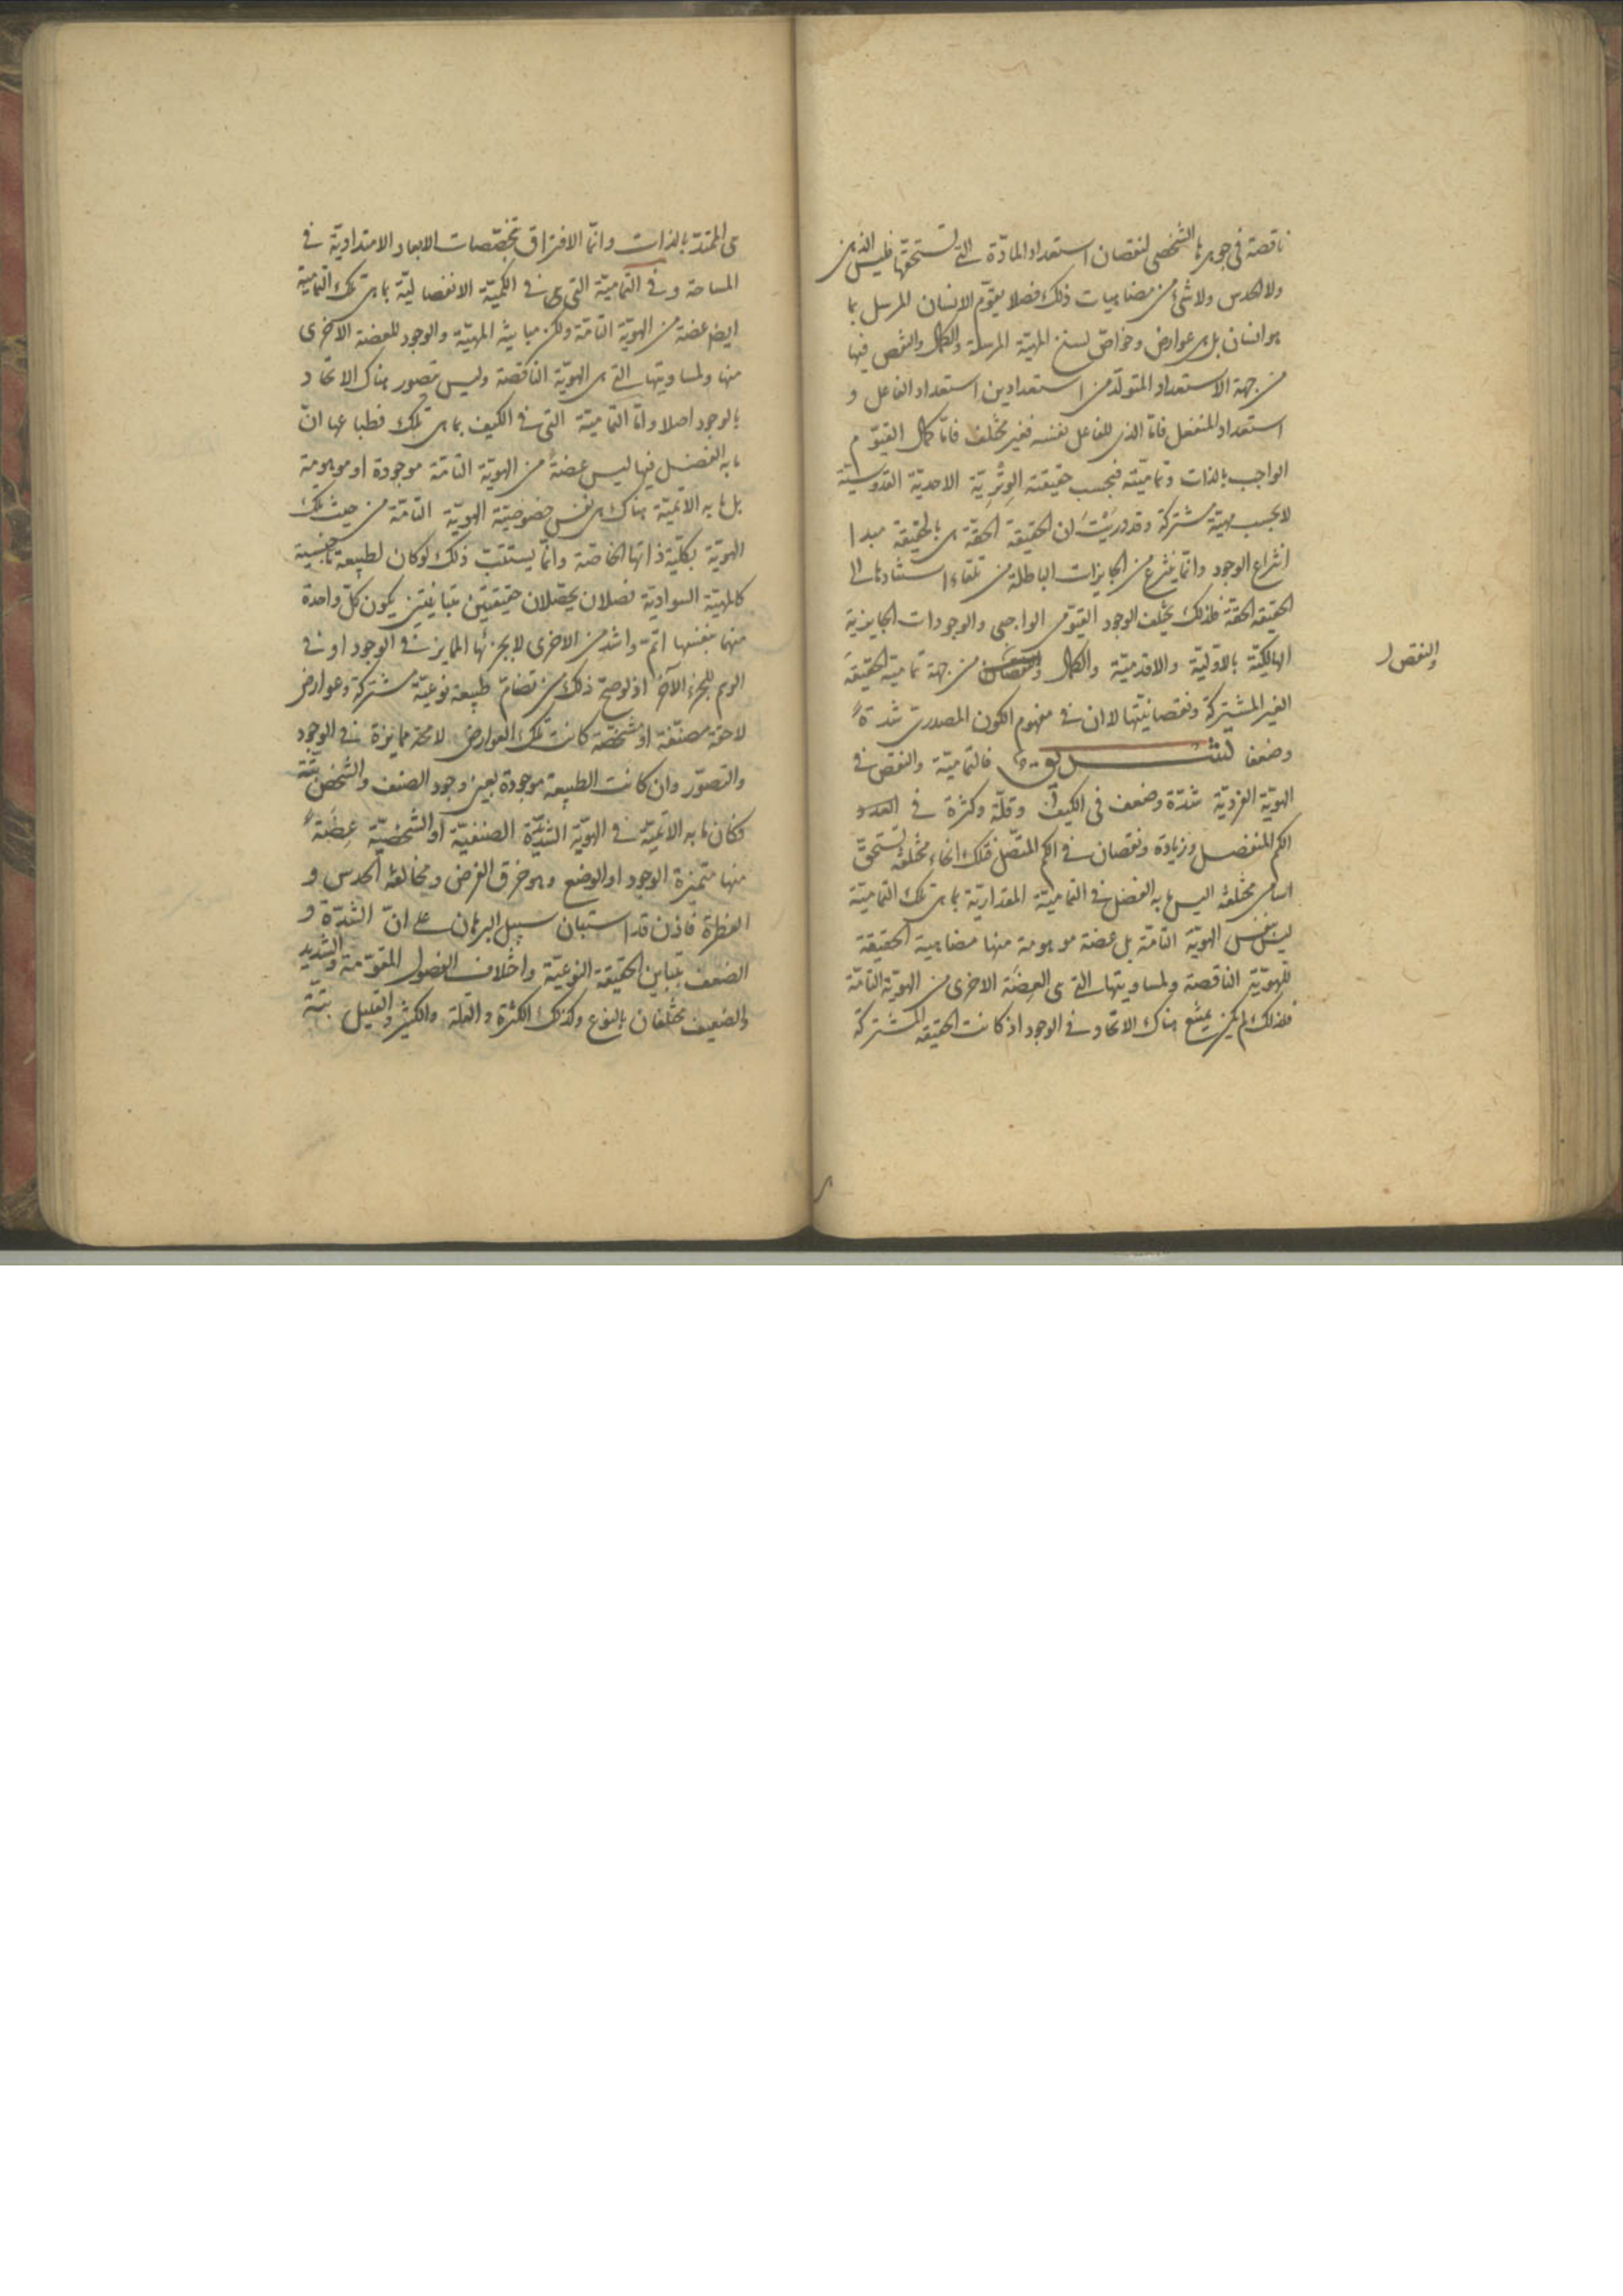 ناقصة فى جوهرها الشخصى لنقصان استعداد المادّة التى تستحقها فليس الذى
ولا الحدس ولا شئ من مضاهيات ذلك فصلا يقوّم الانسان المرسل بما
هو انسان بل هى عوارض وخواصّ لسنخ المهيّة المرسلة والكمال والنقص فيها
من جهة الاستعداد المتولّد من استعدادين استعداد الفاعل و
استعداد المنفعل فامّا الذى للفاعل نفسه فغير مختلف فامّا كمال القيّوم
الواجب بالذات وتماميّته فبحسب حقيقته الوِتْرِيّة الاحديّة القدّوسيّة
لا بحسب مهيّة مشتركة وقد دريت ان الحقيقة الحقّة هى بالحقيقة مبدا
انتزاع الوجود وانّما ينتزع من الجايزات الباطلة من تلقاء استنادها الى
الحقيقة الحقّة فلذلك يختلف الوجود القيّومى الواجبى والوجودات الجايزية
الهالكيّة بالاوّليّة والاقدميّة والكمال من جهة تماميّة الحقيقة
والنقص
الغير المشتركة ونقصانيّتها لا ان فى مفهوم الكون المصدرى شدّةً
وضعفا فالتماميّة والنقص فى
الهويّة الفرديّة شدّة وضعف فى الكيف وقلّة وكثرة فى العدد
الكم المنفصل وزيادة ونقصان فى الكم المتّصل فتلك انحاء مختلفة تستحقّ
اسامى مختلفة اليس ما به الفضل فى التماميّة المقداريّة بما هى تلك التماميّة
ليس نفس الهويّة التامّة بل عضة موهومة منها مضاهية الحقيقة
للهويّة الناقصة ولمساويتها التى هى العِضَة الاخرى من الهويّة التامّة
فلذلك لم يكن يمتنع هناك الاتحاد فى الوجود اذ كانت الحقيقة المشتركة
هى الممتدّ بالذات وانّما الافتراق بتخصّصات الابعاد الامتداديّة فى
المساحة وفى التماميّة التى هى فى الكميّة الانفصاليّة بما هى تلك التماميّة
ايضا عضة من الهويّة التامّة ولكن مباينة المهيّة والوجود للعضة الاخرى
منها ولمساويتها التى هى الهويّة الناقصة وليس يتصور هناك الاتحاد
بالوجود اصلا وامّا التماميّة التى فى الكيف بما هى تلك فطباعها انّ
ما به الفضل فيها ليس عضةً من الهويّة التامّة موجودة او موهومة
بل ما به الاتميّة هناك هى نفس خصوصيّة الهويّة التامّة من حيث تلك
الهويّة بكلّية ذاتها الخاصّة وانّما يستتبّ ذلك لو كان لطبيعة ما جنسية
كالمهيّة السواديّة فصلان يحصّلان حقيقتين متباينتين يكون كلّ واحدة
منهما بنفسها اتمّ واشد من الاخرى لا بجزئها المايز فى الوجود او فى
الوهم للجزء الآخر اذ لو صحّ ذلك من تضامّ طبيعة نوعيّة مشتركة وعوارض
لاحقة مصنّفة او مشخّصة كانت تلك العوارض لا محة ممايزة فى الوجود
والتصوّر وان كانت الطبيعة موجودة بعين وجود الصنف والشخص بتّة
فكان ما به الاتميّة فى الهويّة الشديدة الصنفيّة او الشخصيّة عِضَةً
منها متميزة الوجود او الوضع وهو خرق الفرض ومخالفة الحدس و
الفطرة فاذن قد استبان سبيل البرهان على انّ الشدّة و
الضعف بتباين الحقيقة النوعيّة واختلاف الفصول المقوّمة والشديد
والضعيف مختلفان بالنوع وكذلك الكثرة والقلة والكثير والقليل بتّة